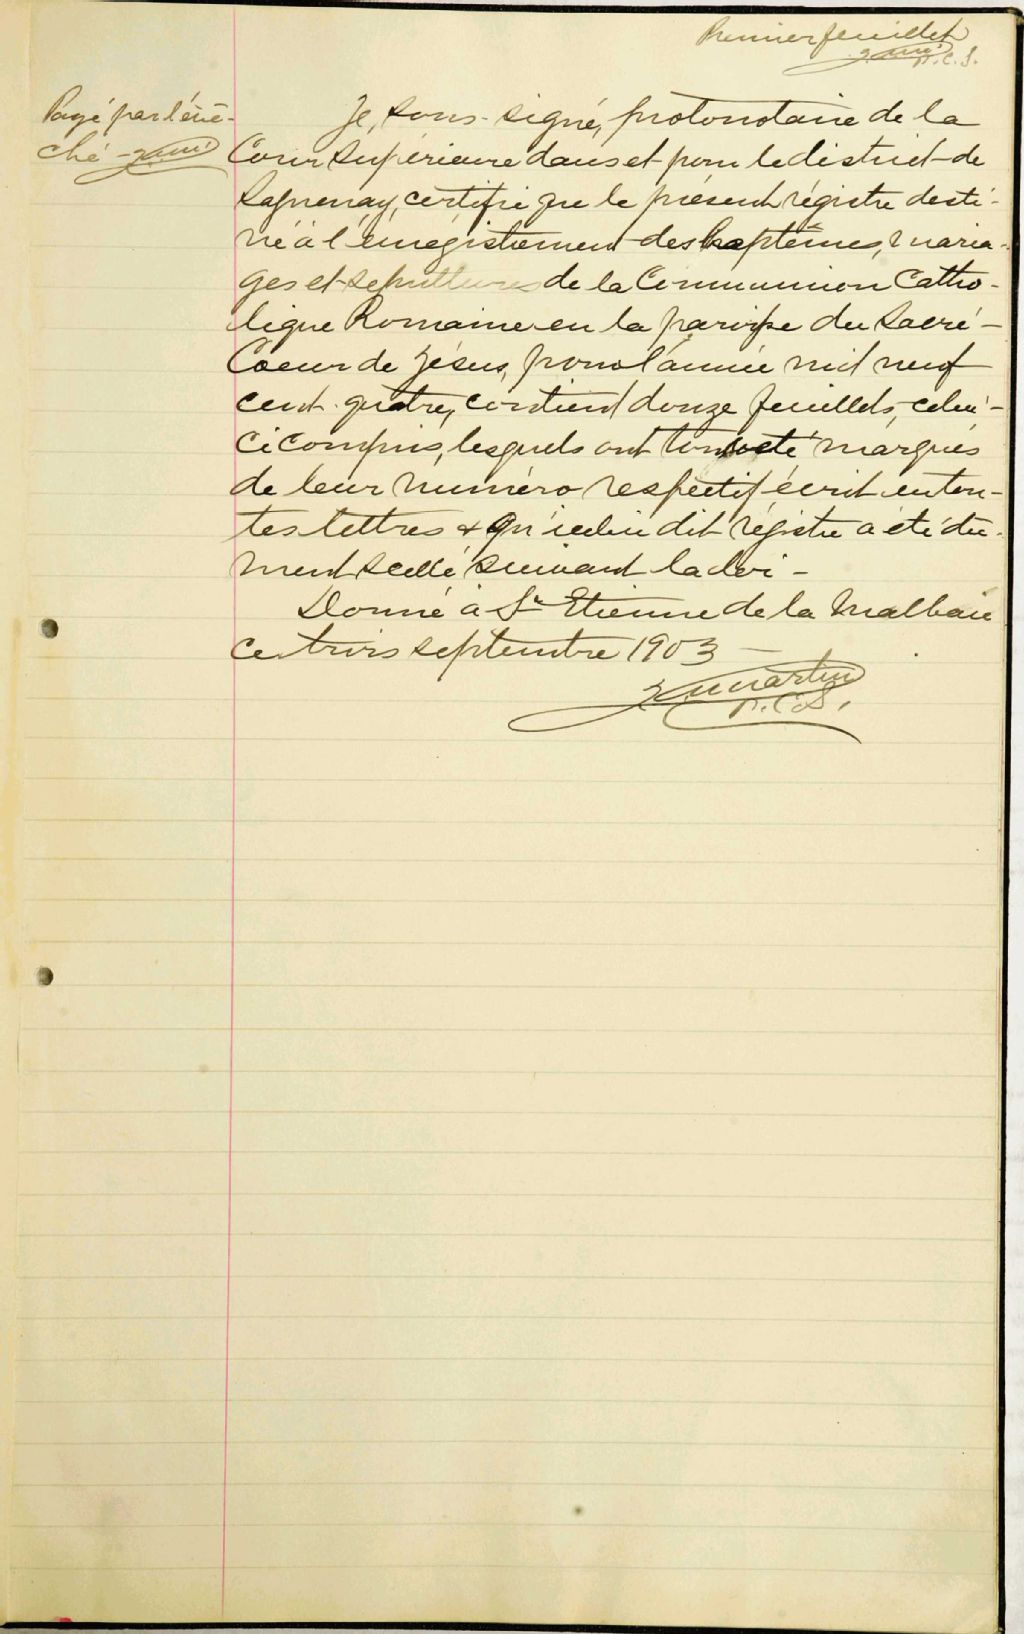 Premier feuillet
P.C.S.
Payé par l'évê-
ché -
Je, sous-signé, protonotaire de la
Cour Supérieure dans et pour le district de
Saguenay, certifie que le présent régistre desti-
né à l'enregistrement des baptêmes, maria-
ges et sepultures de la Communion Catho-
lique Romaine en la paroisse du Sacré-
Coeur de Jésus, pour l'année mil neuf
cent quatre, contient douze feuillets, celui-
ci compris, lesquels ont tous été marqués
de leur numéro respectif écrit en tou-
tes lettres & qu'icelui dit régistre a été dû-
ment scellé suivant la loi -
Donné à St Etienne de la Malbaie
ce trois septembre 1903 -
Martin
P.C.S.